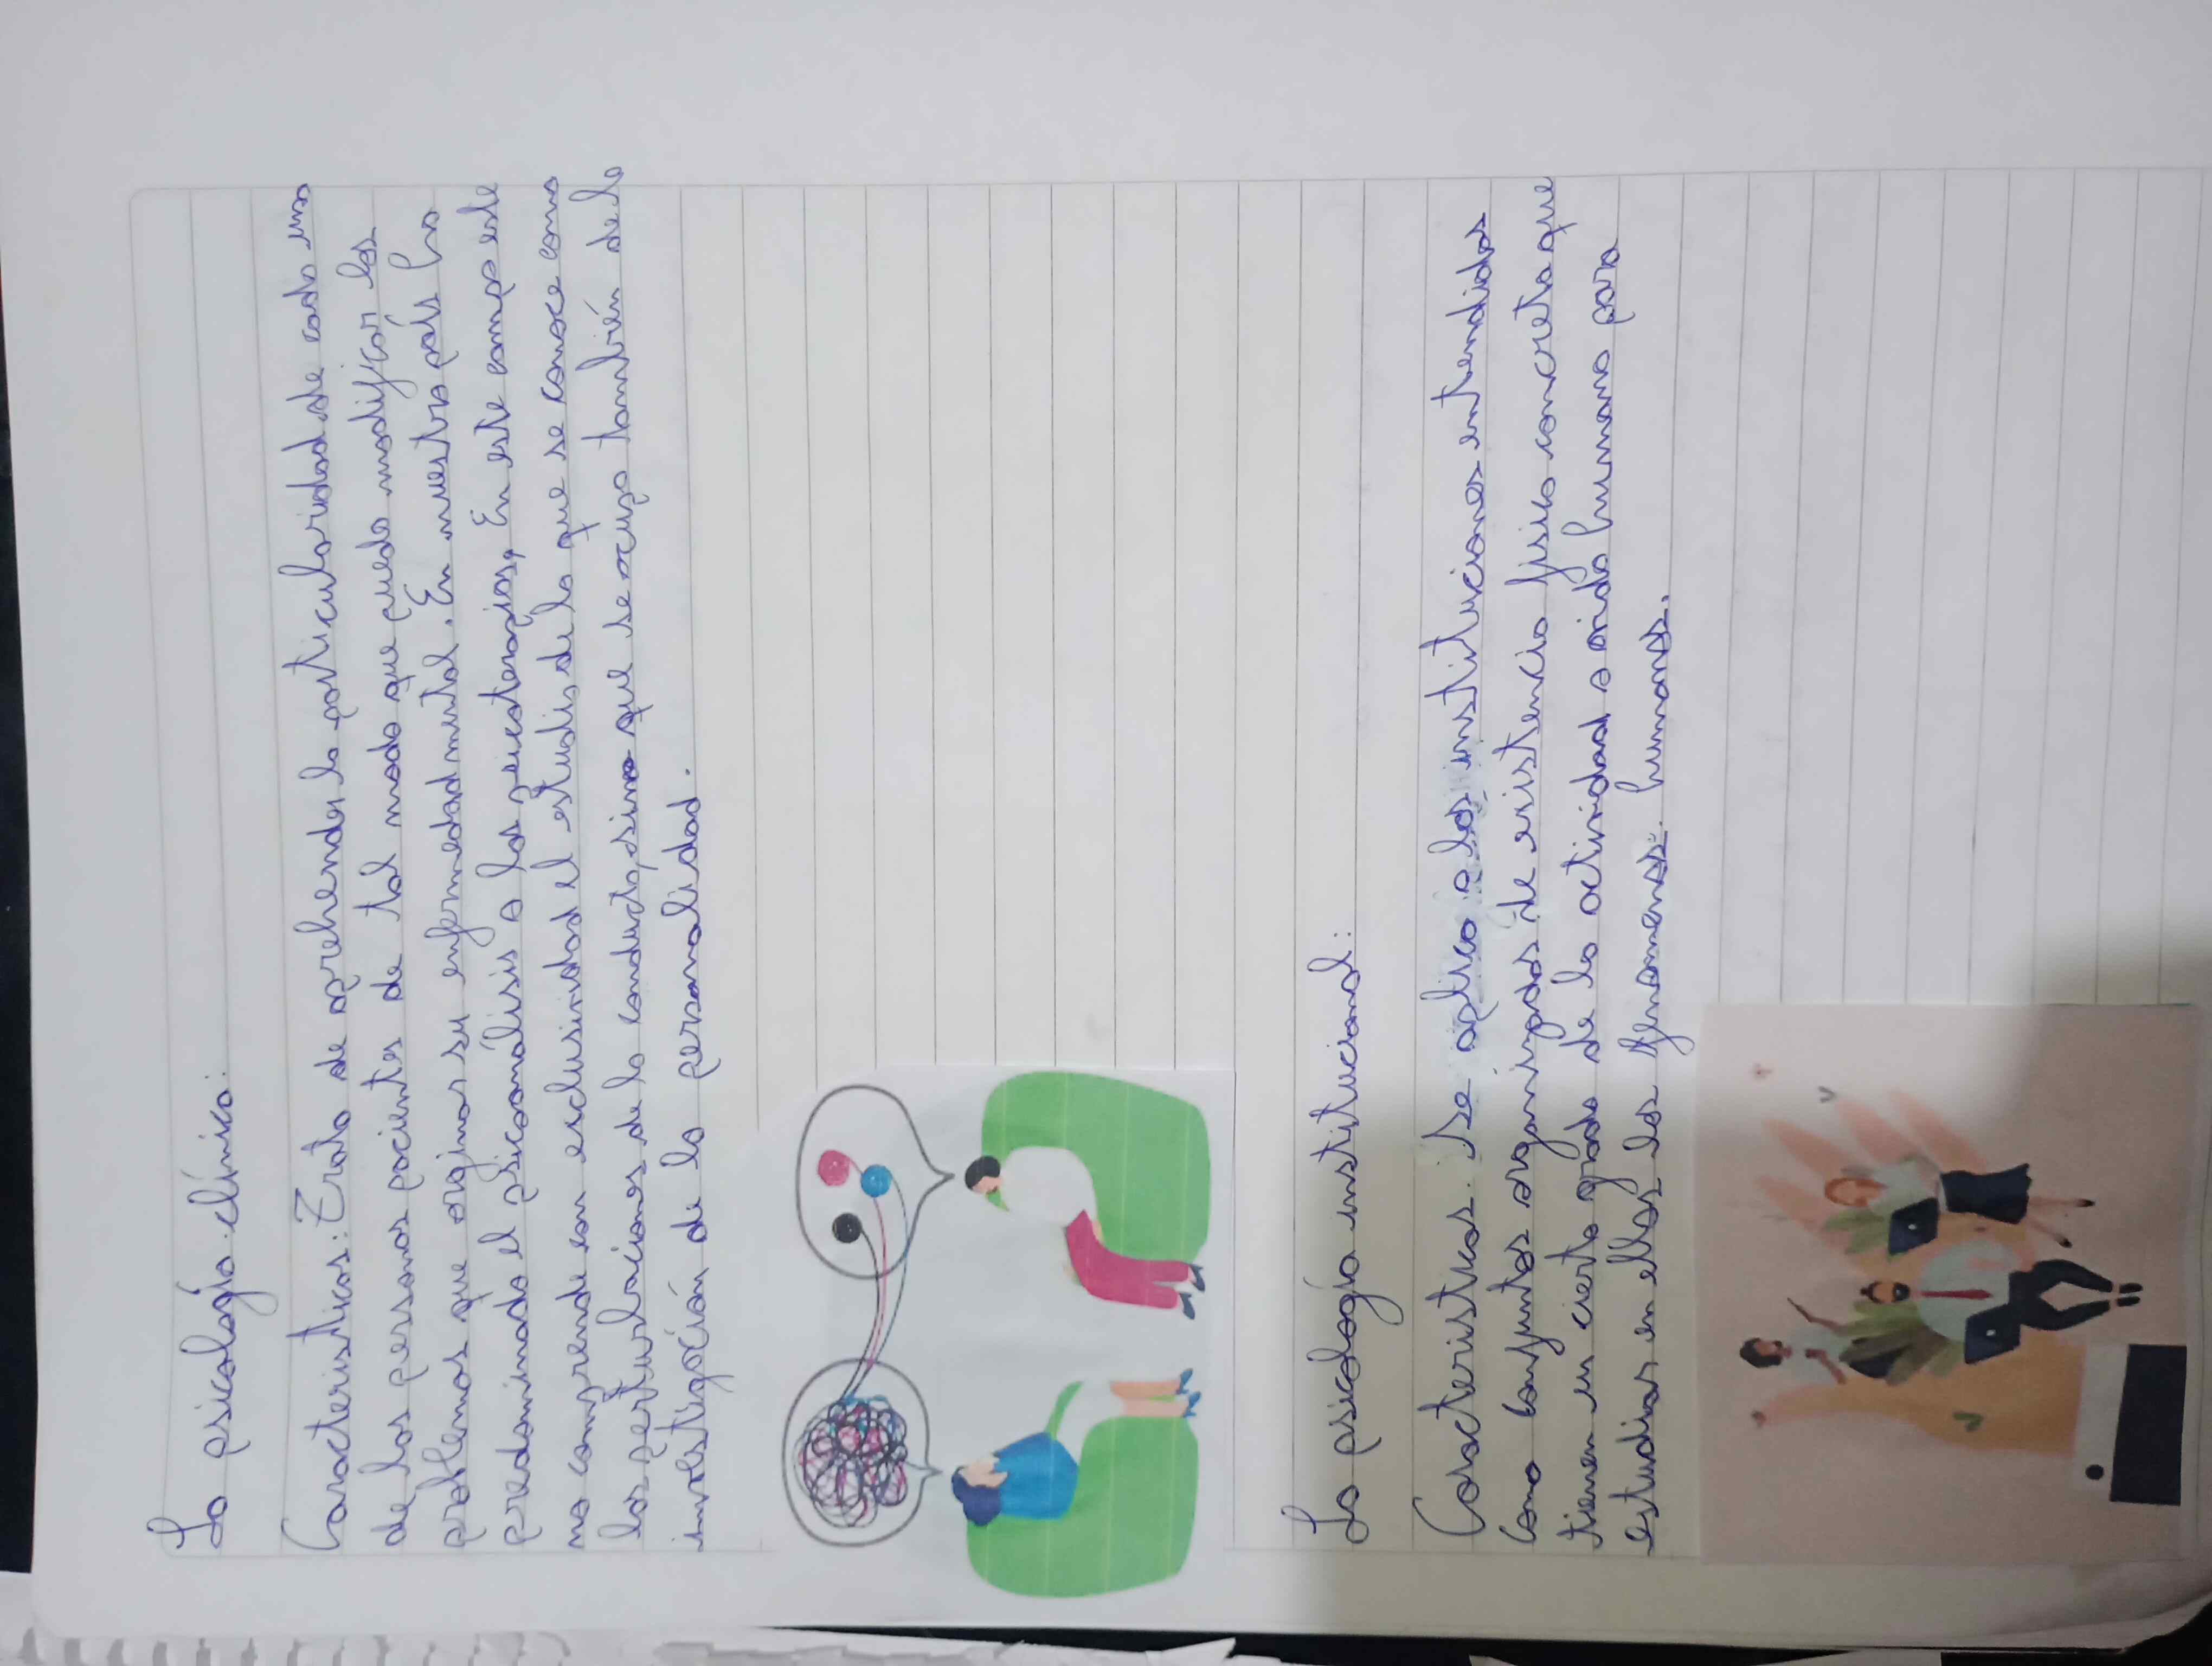 La psicología clínica:
Características: Trata de aprehender la particularidad de cada una
de las personas pacientes de tal modo que pueda modificar los
problemas que originar su enfermedad mental. En nuestro país ha
predominado el psicoanálisis a las psicoterapias, En este campo este
no comprende con exclusividad el estudio, de lo que se conoce como
las perturbaciones de la conducta, sino que se ocupa también de la
investigación de la personalidad.
La psicología institucional:
Características: Se aplica a las instituciones entendidas
como conjuntos organizados de existencia física concreta que
tienen un cierto grado de la actividad o vida humana para
estudiar en ellas los fenomenos humanos.